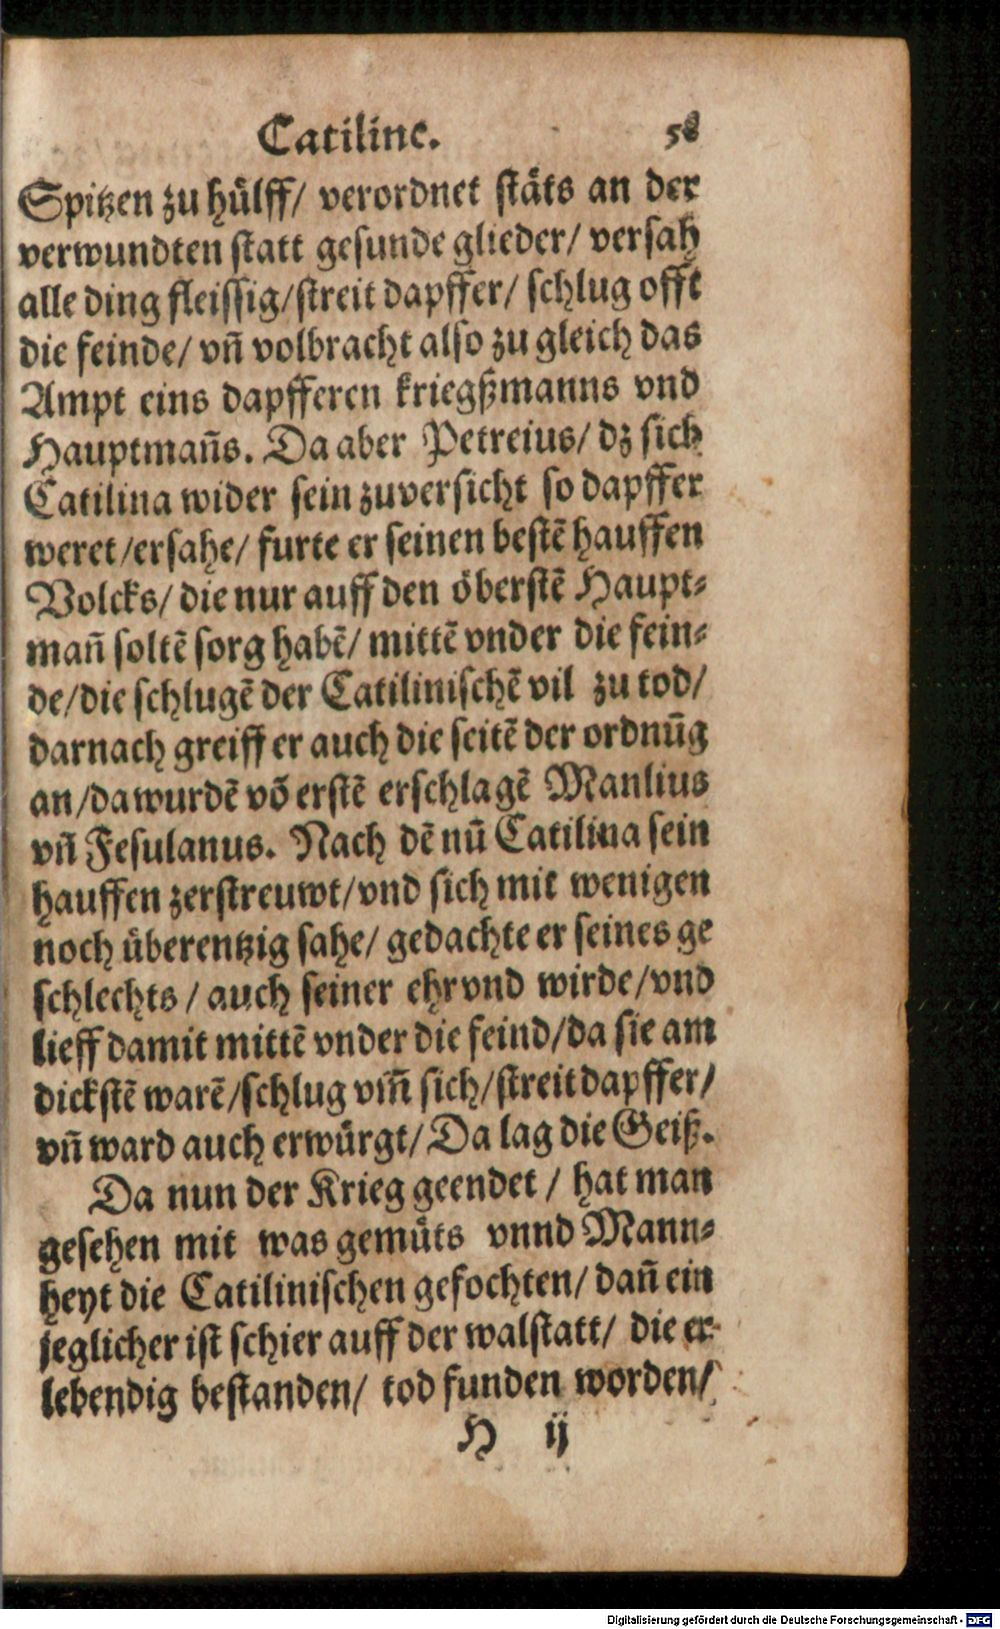 Catiline. 58
Spitzen zu hülff/ verordnet stäts an der
verwundten statt gesunde glieder/ versah
alle ding fleissig/streit dapffer/ schlug offt
die feinde/ vñ volbracht also zu gleich das
Ampt eins dapfferen kriegßmanns vnd
Hauptmañs. Da aber Petreius/ dz sich
Catilina wider sein zuversicht so dapffer
weret/ersahe/ furte er seinen bestē hauffen
Volcks/ die nur auff den öberstē Haupt-
mañ soltē sorg habē/ mittē vnder die fein-
de/die schlugē der Catilinischē vil zu tod/
darnach greiff er auch die seitē der ordnūg
an/da wurdē võ erstē erschlagē Manlius
vñ Fesulanus. Nach dē nū Catilina sein
hauffen zerstreuwt/vnd sich mit wenigen
noch überentzig sahe/ gedachte er seines ge
schlechts / auch seiner ehr vnd wirde/vnd
lieff damit mittē vnder die feind/da sie am
dickstē warē/schlug vm̃ sich/streit dapffer/
vñ ward auch erwürgt/Da lag die Geiß.
Da nun der Krieg geendet / hat man
gesehen mit was gemüts vnnd Mann-
heyt die Catilinischen gefochten/ dañ ein
jeglicher ist schier auff der walstatt/ die er
lebendig bestanden/ tod funden worden/
H ij
Digitalisierung gefördert durch die Deutsche Forschungsgemeinschaft - DFG